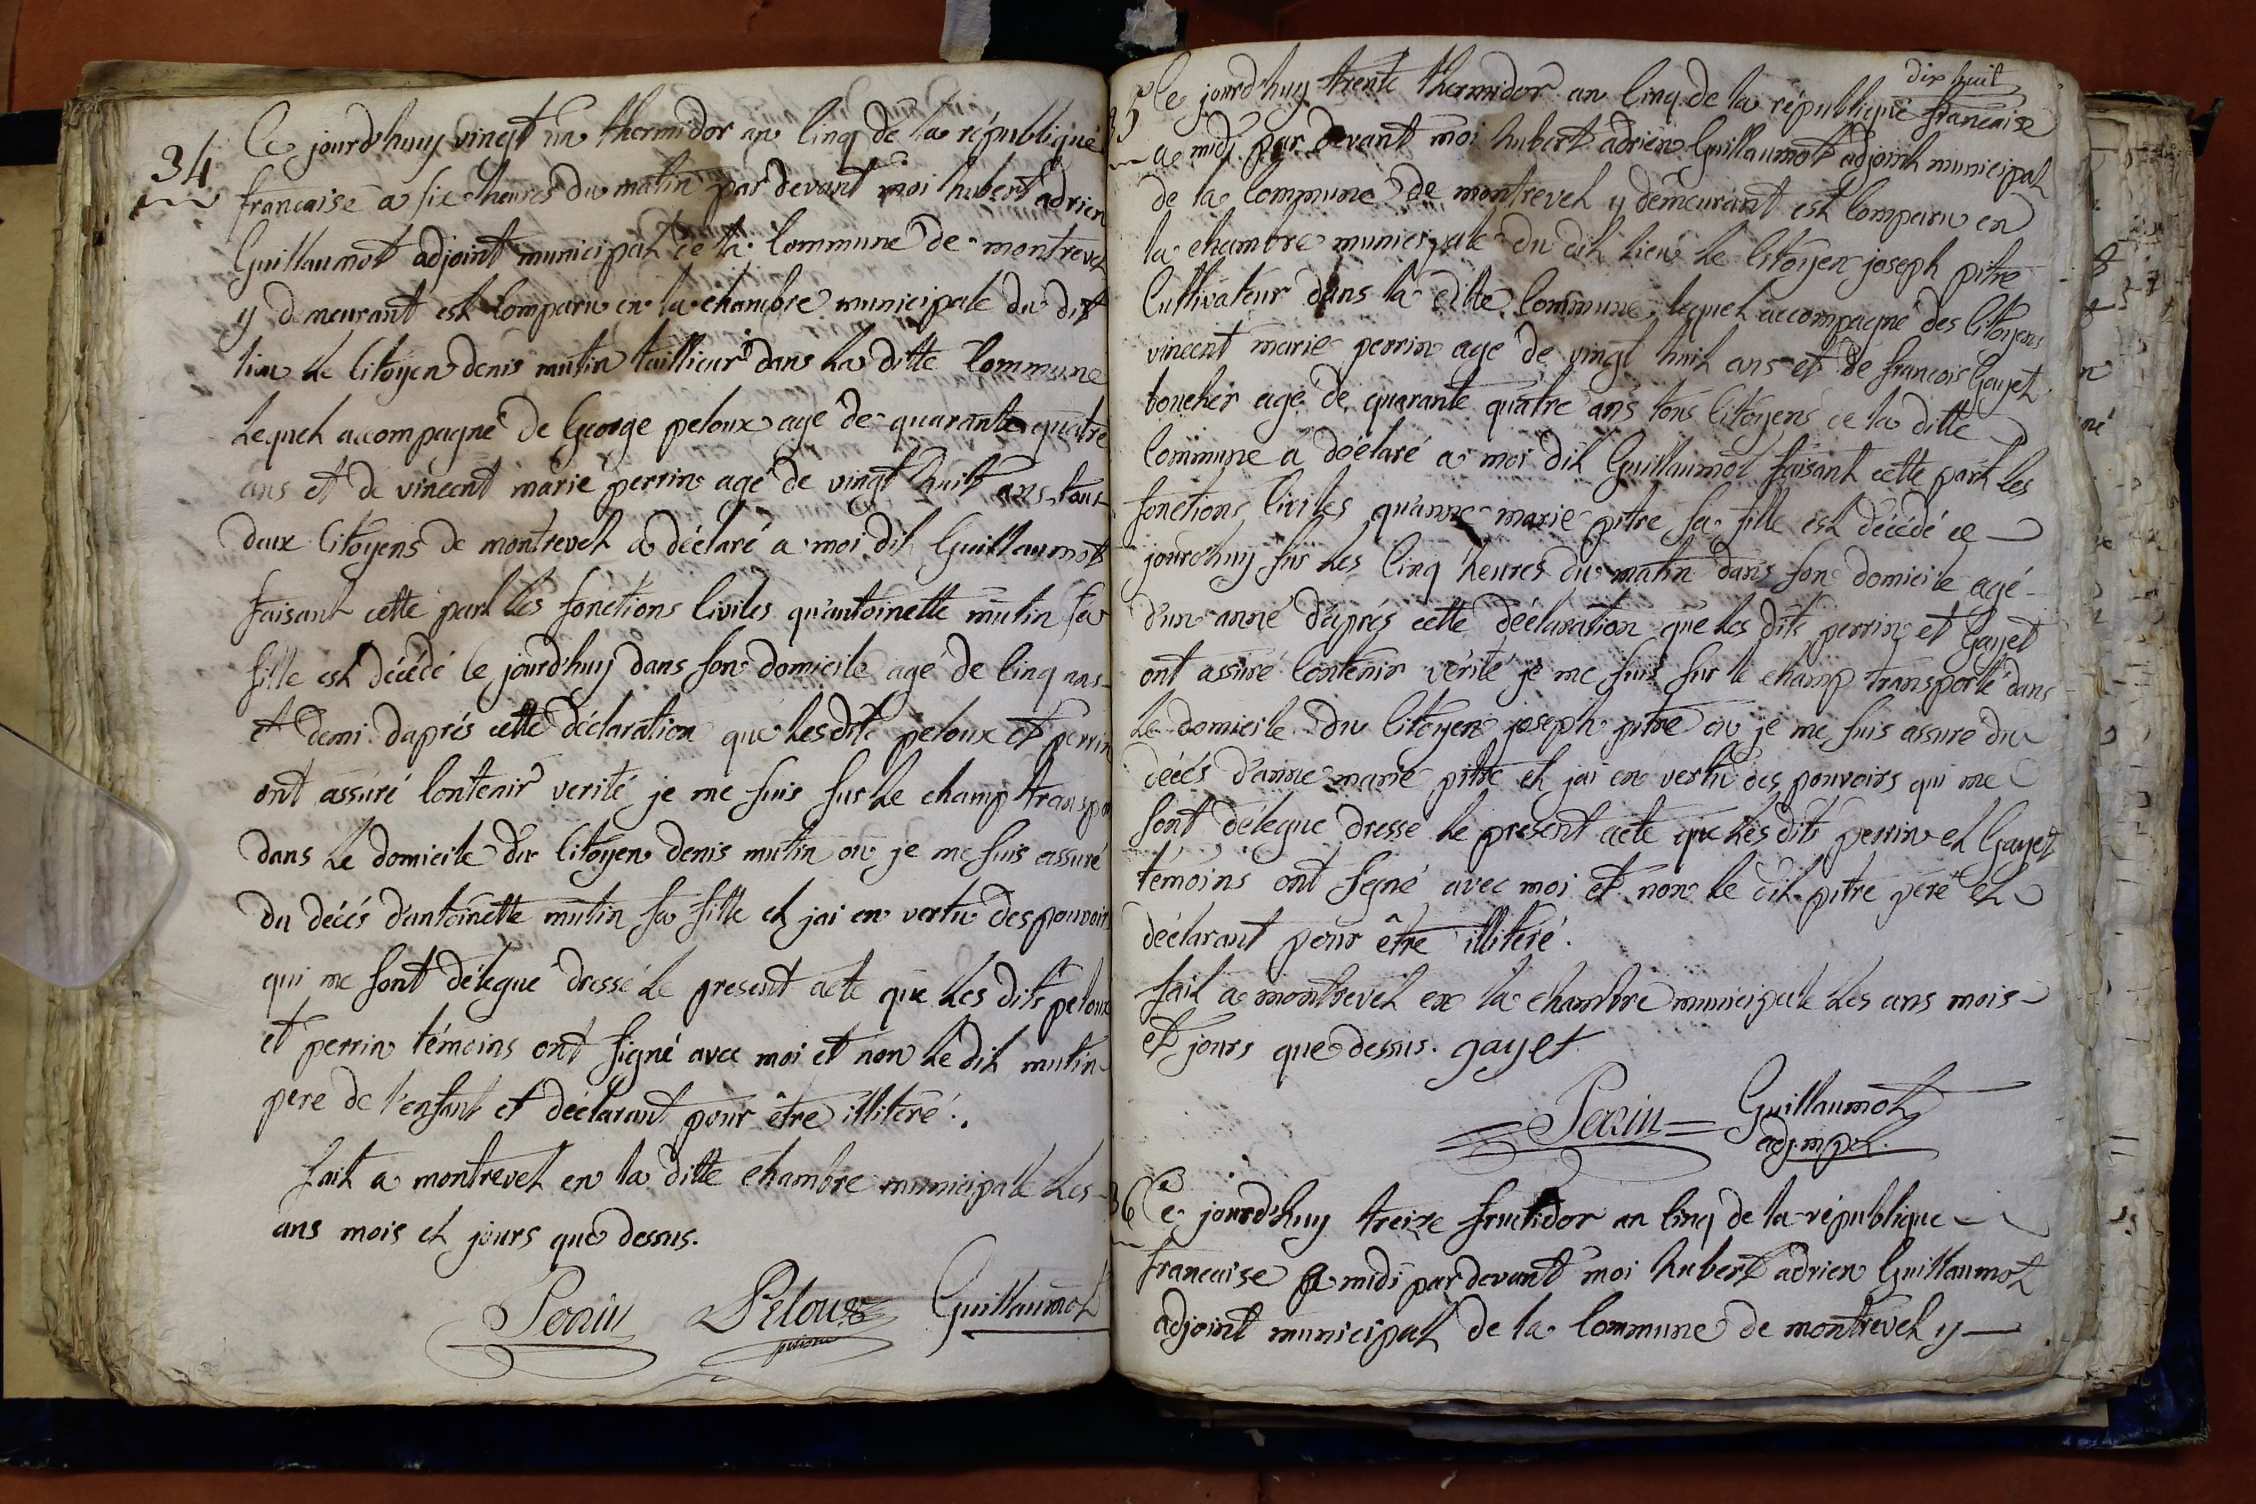 34
Ce jourd'huy vingt un thermidor an cinq de la républiqué
francaise a six heures du matin par devant moi hubert adrien
Guillaumot adjoint municipal de la commune de montrevel
y demeurant est comparu en la chambre municipale du dit
lieu le citoyen denis mutin tailleur dans la ditte commune
lequel accompagné de George peloux agé de quarante quatre
ans et de vincent marie perrin agé de vingt huit ans tous
deux citoyens de montrevel a déclaré a moi dit Guillaumot
faisant cette part les fonctions civiles qu'antoinette mutin sa
fille est décédé le jourd'huy dans son domicile agé de cinq ans
et demi d'aprés cette déclaration que lesdits peloux et perrin
ont assuré contenir verité je me suis sur le champ transpor
dans le domicile du citoyen denis mutin ou je me suis assuré
du décés d'antoinette mutin sa fille et jai en vertu des pouvoirs
qui me sont délegué dressé le present acte que les dits peloux
et perrin témoins ont signé avec moi et non le dit mutin
pere de l'enfant et déclarant pour être illiteré.
fait a montrevel en la ditte chambre municipale les
ans mois et jours que dessus.
Perrin Peloux Guillaumot
dix huit
35 Ce jourd'huy trente thermidor an cinq de la républiqué francaise
a midi par devant moi hubert adrien Guillaumot adjoint municipal
de la commune de montrevel y demeurant est comparu en
la chambre municipale du dit lieu le citoyen joseph pitre
cultivateur dans la ditte commune, lequel accompagné des citoyens
vincent marie perrin agé de vingt huit ans et de francois Gayet
boucher agé de quarante quatre ans tous citoyens de la ditte
commune a déclaré a moi dit Guillaumot faisant cette part les
fonctions civiles qu'anne marie pitre sa fille est décédé ce
jourd'huy sur les cinq heures du matin dans son domicile agé
d'un anné d'aprés cette déclaration que les dits perrin et Gayet
ont assuré contenir vérité je me suis sur le champ transporté dans
le domicile du citoyen joseph pitre ou je me suis assuré du
décés d'anne marie pitre et jai en vertu des pouvoirs qui me
sont délegué dressé le present acte que les dits perrin et Gayet
témoins ont signé avec moi et non le dit pitre pere et
déclarant pour être illiteré.
fait a montrevel en la chambre municipale les ans mois
et jours que dessus. gayet
Perrin Guillaumot
adj. mpal.
36 Ce jourd'huy treize fructidor an cinq de la république
francaise a midi par devant moi hubert adrien Guillaumot
adjoint municipal de la commune de montrevel y